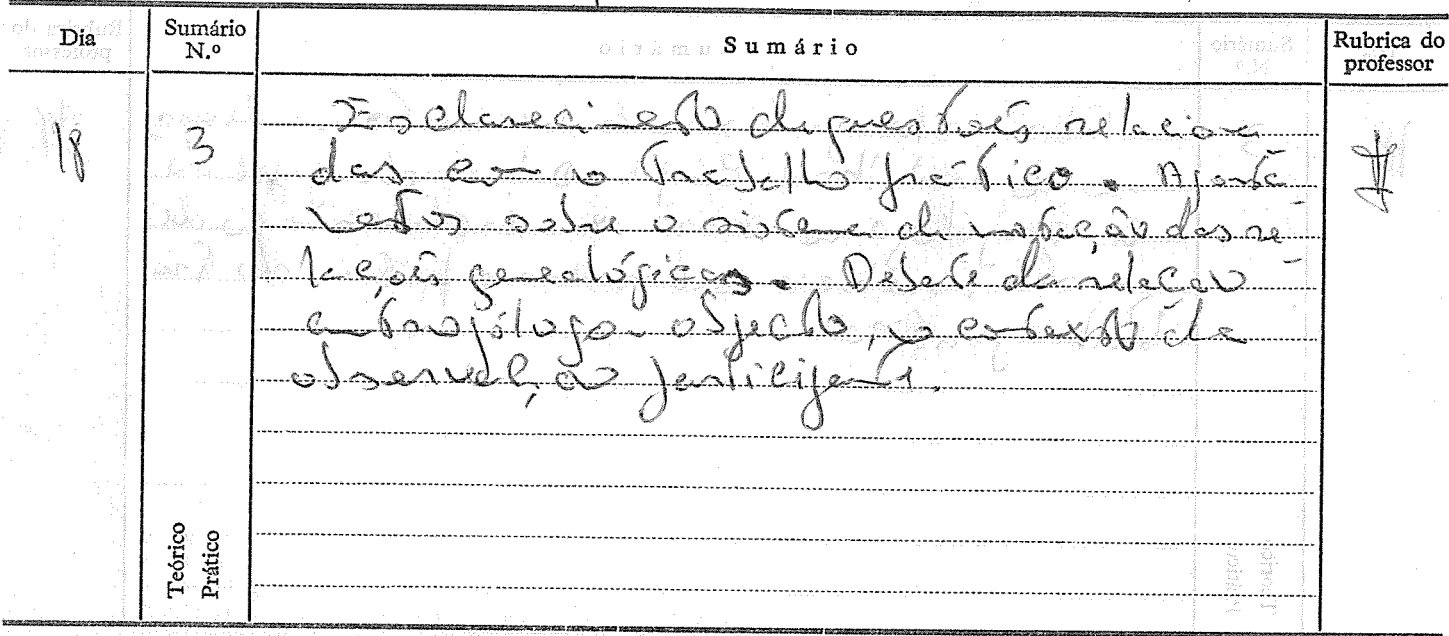 Dia
Sumário
N.º
Sumário
Rubrica do
professor
18
3
Esclarecimento de questões relaciona
das com o trabalho prático. Aponta
mentos sobre o sistema de notação das re
lações genealógicas. Debate da relação
antropólogo-objecto, no contexto da
observação participante.
Teórico
Prático